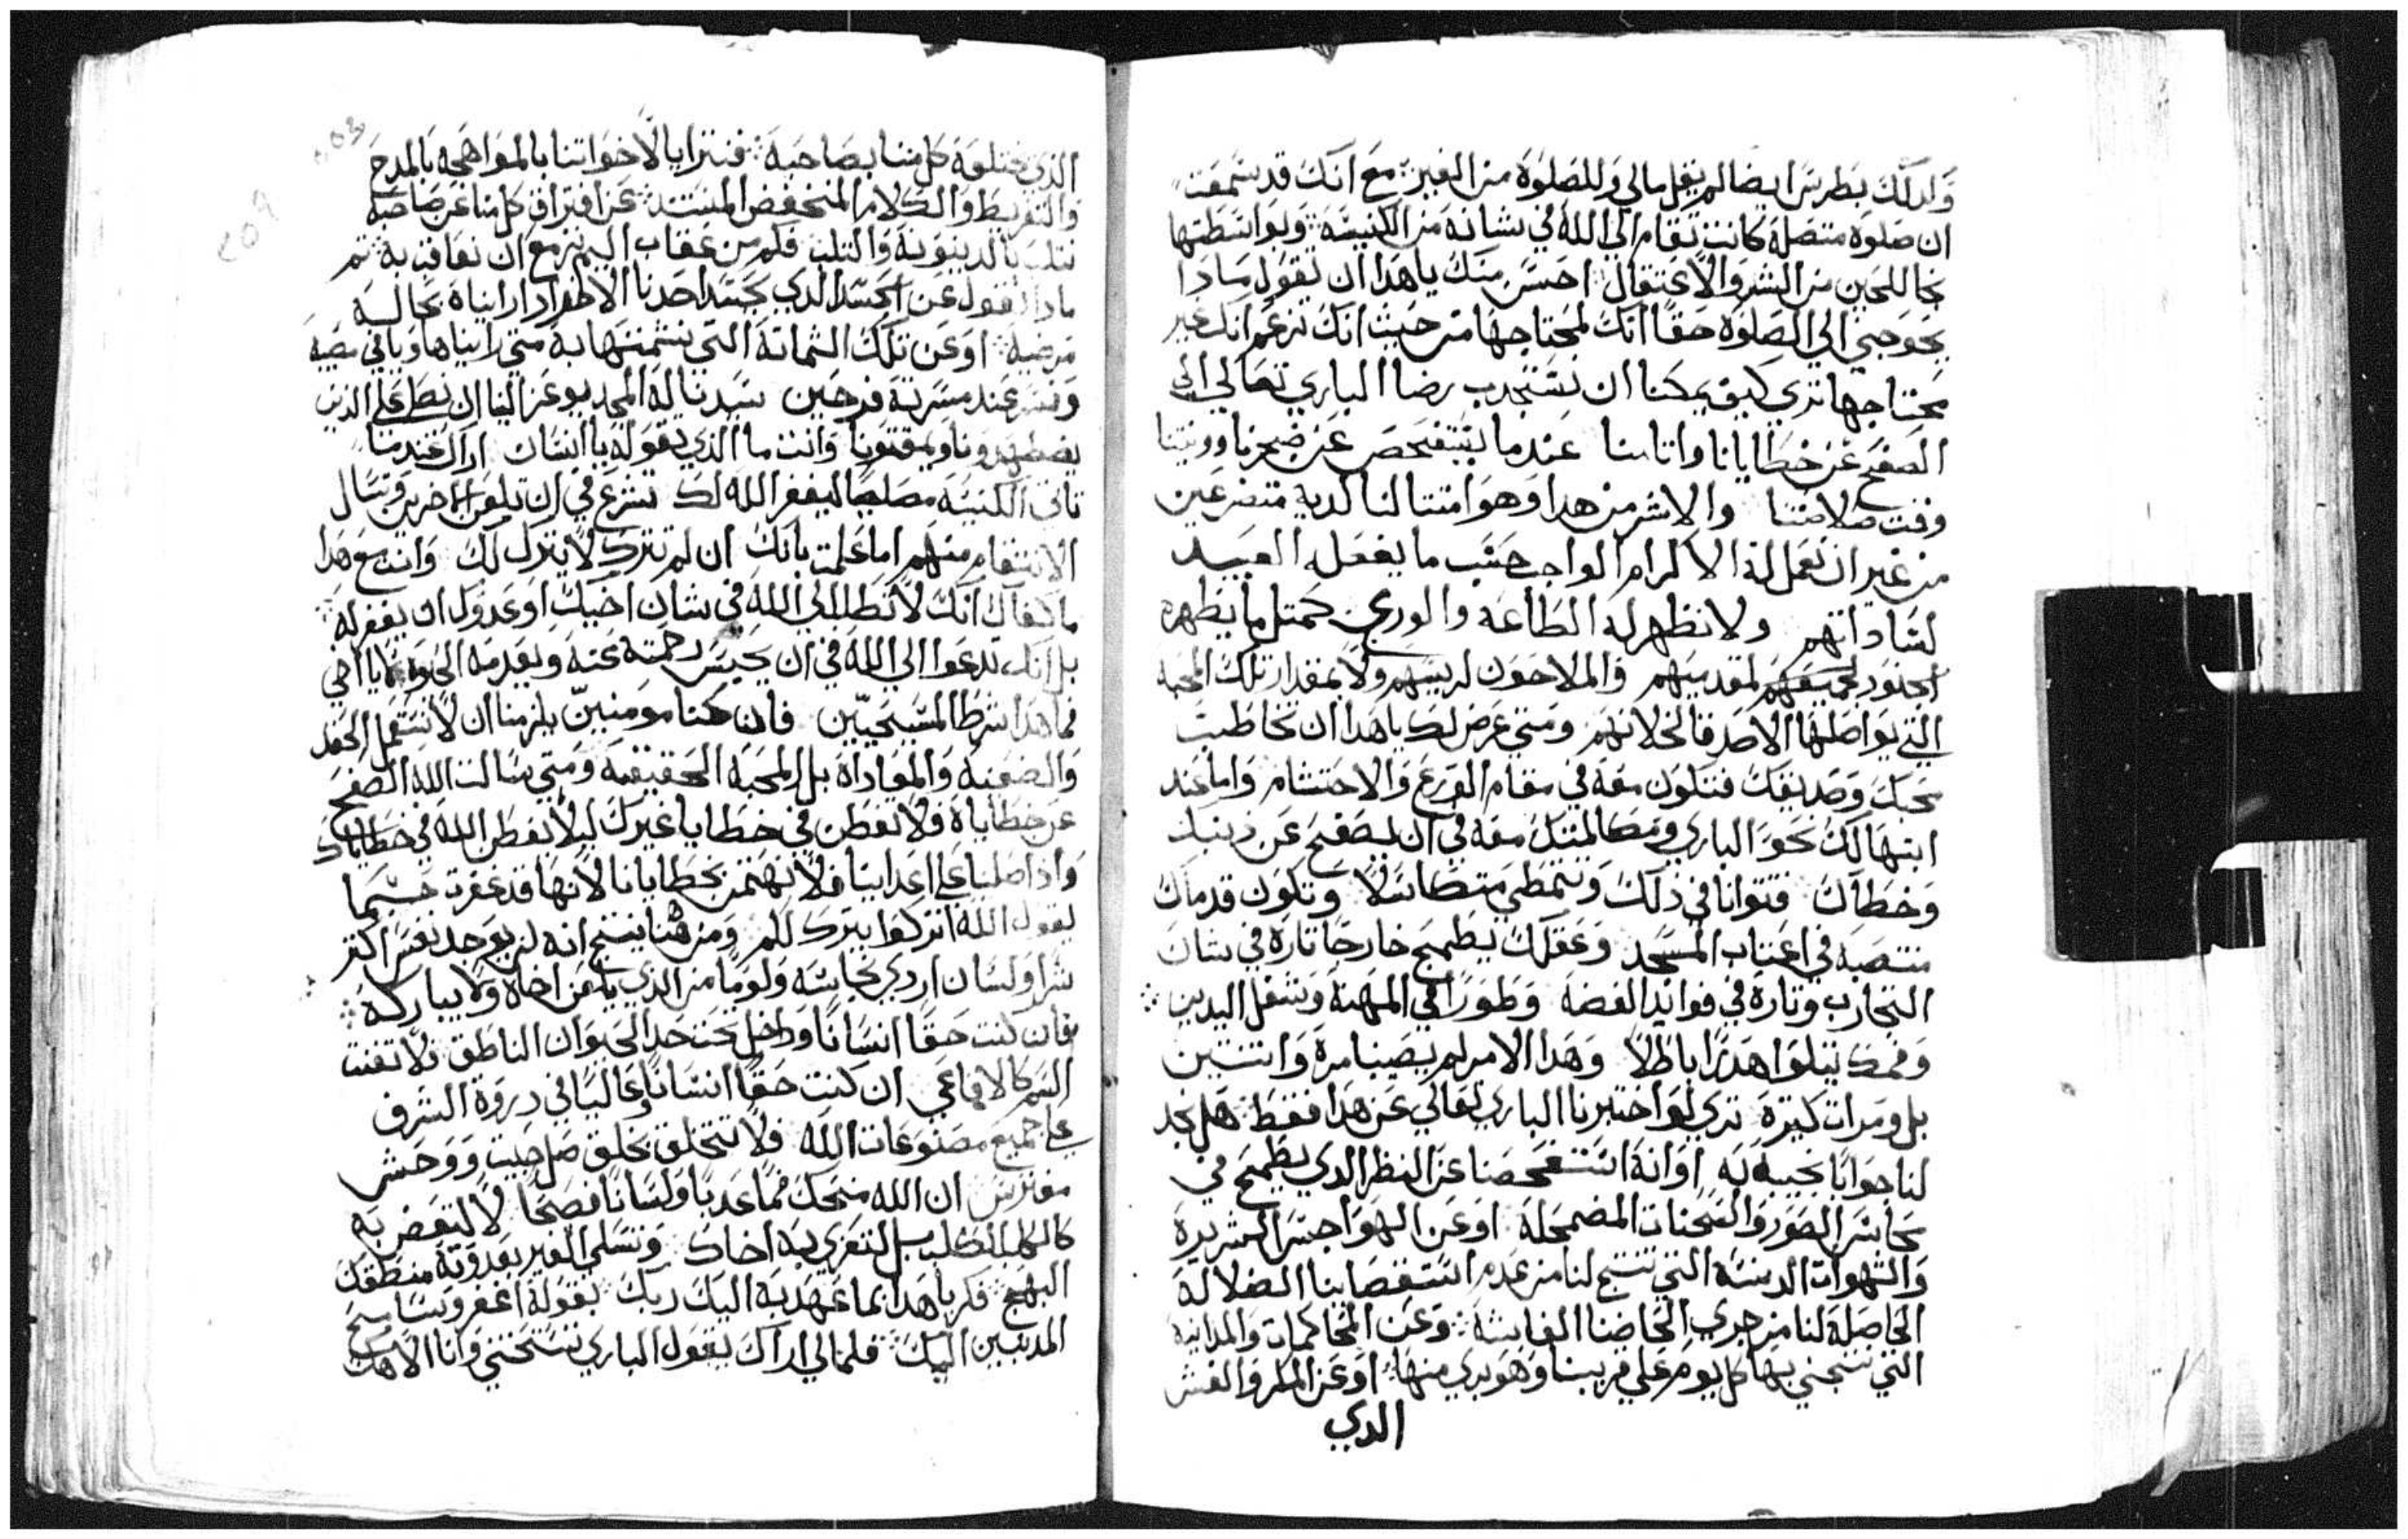 وَلدلكَ بطرس ايضا لم يقل مالي وَللصَلوَة من الغير: معَ انكَ قد سَمعَت
ان صَلوَة متصَلة كانت تقام الي الله في شانه من الكنيسَة: وَبوَاسَطتها
نجا للحين من السَر وَالاعتقال احسَن منكَ ياهَدا ان تقوَل مادا
يحوَجني الي الصَلوَة حَقا انكَ لمحتاجها من حَيث انكَ تزعَم انكَ غير
محتاجها تري كيف يمكنا ان نسَتجدب رضا الباري تعَالي الي
الصَفح عَن خطايانا واتامنا عَندما يتفحَصَ عَن ضجرنا وونيتنا
وقت صَلاتنا والاشر من هدا وَهوَ امتتالنا لديه متضرعَين
من غير ان نعَمل له الاكرام الواجب حَسَب ما يفعَل العَبيد
لسَاداتهم ولا نظهر له الطاعَه والورع كمتل ما يظهره
الجنوَد لمقدميهم وَالملاحَوَن لريسَهم ولا بمقدار تلكَ المحَبة
التي يوَاصَلها الاصَدقا لخلانهم ومتي عَرض لكَ ياهَدا ان تخاطبَ
محَبكَ وَصَديقكَ فتكوَن معَه في مقام الوَرع وَالاحَتشام وَاما عَند
ابتهالكَ نحَوَ الباري وَمكالمتكَ معَه في ان يصَفح عَن دنبكَ
وَخطاكَ فتتوانا في دلكَ وَتتمطي متكاسَلاً وَتكوَن قدماكَ
منتصَبه في اعتاب المسَجد وَعَقلكَ يطمح خارجاً تارة في شان
التجارب وتارة في فوايد الفضة وَطوَراً في المهنة وَشغل اليدين
وَفمك يتلوَا هَدراً باطلاً وَهَدا الامر لم يصَبنا مرة وَاتنتين
بل ومَرات كتيرة تري لوَ اختبرنا الباري تعَالي عَن هَدا فقط هَل نجد
لنا جوَاباً نجيبه به اوَ انه اسَتفحَصَنا عَن النظر الدي يطمح في
محاسَن الصَوَر وَالسَحنات المضمحَلة اوَ عَن الهوَاجسَ الشريرة
وَالشهوات الدنسَة التي تنتج لنا من عَدم اسَتقصَاينا الضلالة
الحَاصَلة لنا من جري الحاضنا الفاسَقة وَعَن المحَاكمات وَالمداينة
التي نتجني بها كل يوَم عَلي قريبنا وَهوَ بري منها اوَ عَن المكر وَالغش
الدي
الدي نختلقه كل منا بصَاحَبه: فنتزايا لاخوَاتنا بالموَاجهَه بالمدح
وَالتقريظ وَالكلام المنخفض المسَتد: عَن افتراق كل منا عَن صَاحَبه
نتلبَ بالدينوَنة وَالتلب فلم من عَقاب اليم نزمع ان نعَاقب به تم
مادا نقوَل عَن الحَسَد الدي يحَسَد احَدنا الاخر ادا راياه بحَالة
مرضية: اوَ عَن تلكَ الشماتة التي نشمتها به متي رايناها وَباقي مصَيبة
وَنسَر عَند مسَرته فرحَين سَيدنا له المجد يوعز الينا ان نصَلي علي الدين
يضطهدوَنا وَيمقتوَنا وَانت ما الدي تقوَله يا انسَان اراكَ عَندما
تاتي الكنيسَة مصَليا ليغفر الله لكَ تشرع في ان تلعَن الاخرين وَتسَال
الانتقام منهم اما عَلمت بانكَ ان لم تترك لا يتركَ لكَ وَانت مع هَدا
ما كفاكَ انكَ لا تطلب الي الله في شان اخيكَ اوَ عَدوَكَ ان يغفر له
بل انكَ تدعَوا الي الله في ان يحبسَ رحَمته عَنه وَيعَدمه الحَيوَة يا اخي
فما هَدا شرط المسَيحَيين فان كنا موَمنين يلزمنا ان لا نسَتعَمل الحَقد
وَالضغينة وَالمعَاداة بل المحَبة الحَقيقية وَمتي سَالت الله الصَفح
عَن خطاياه فلا تفطن في خطايا غيركَ ليلا يفطن الله في خطاياك
وَادا صَلينا عَلي اعَداينا فلا نهتمن بخطايانا لانها قد غفرت حَسَبما
يقوَل الله اتركوا يترك لكم وَمن هنا ينتج انه لن يوَجد نفسَ اكتر
شراً وَلسَان اردي نجاسَة وَلوَماً من الدي يلعَن اخاه وَلا يباركه
فان كنت حَقاً انسَاناً وَداخل تحَت حَد الحَيوَان الناطق فلا تنفت
السَم كالافاعَي ان كنت حَقاً انسَاناً وَعَالياً في دروَة الشرف
عَلي جميع مصَنوَعَات الله فلا تتخلق بخلق صَل خبيت وَوَحَش
مفترس ان الله منحَكَ فماً عَدباً وَلسَاناً فصَيحَاً لا لتعَض به
كالكلب الكلب بل لتعَزي به اخاك وَتسَلي الغير بعَدوَبة منطقكَ
البهج فكر ياهَدا بما عَهَد به اليكَ ربكَ بقوَله اغفر وَسَامح
المدنبين اليكَ فلمالي اراكَ يقوَل الباري تسَتحَتني وَانا الاهكَ